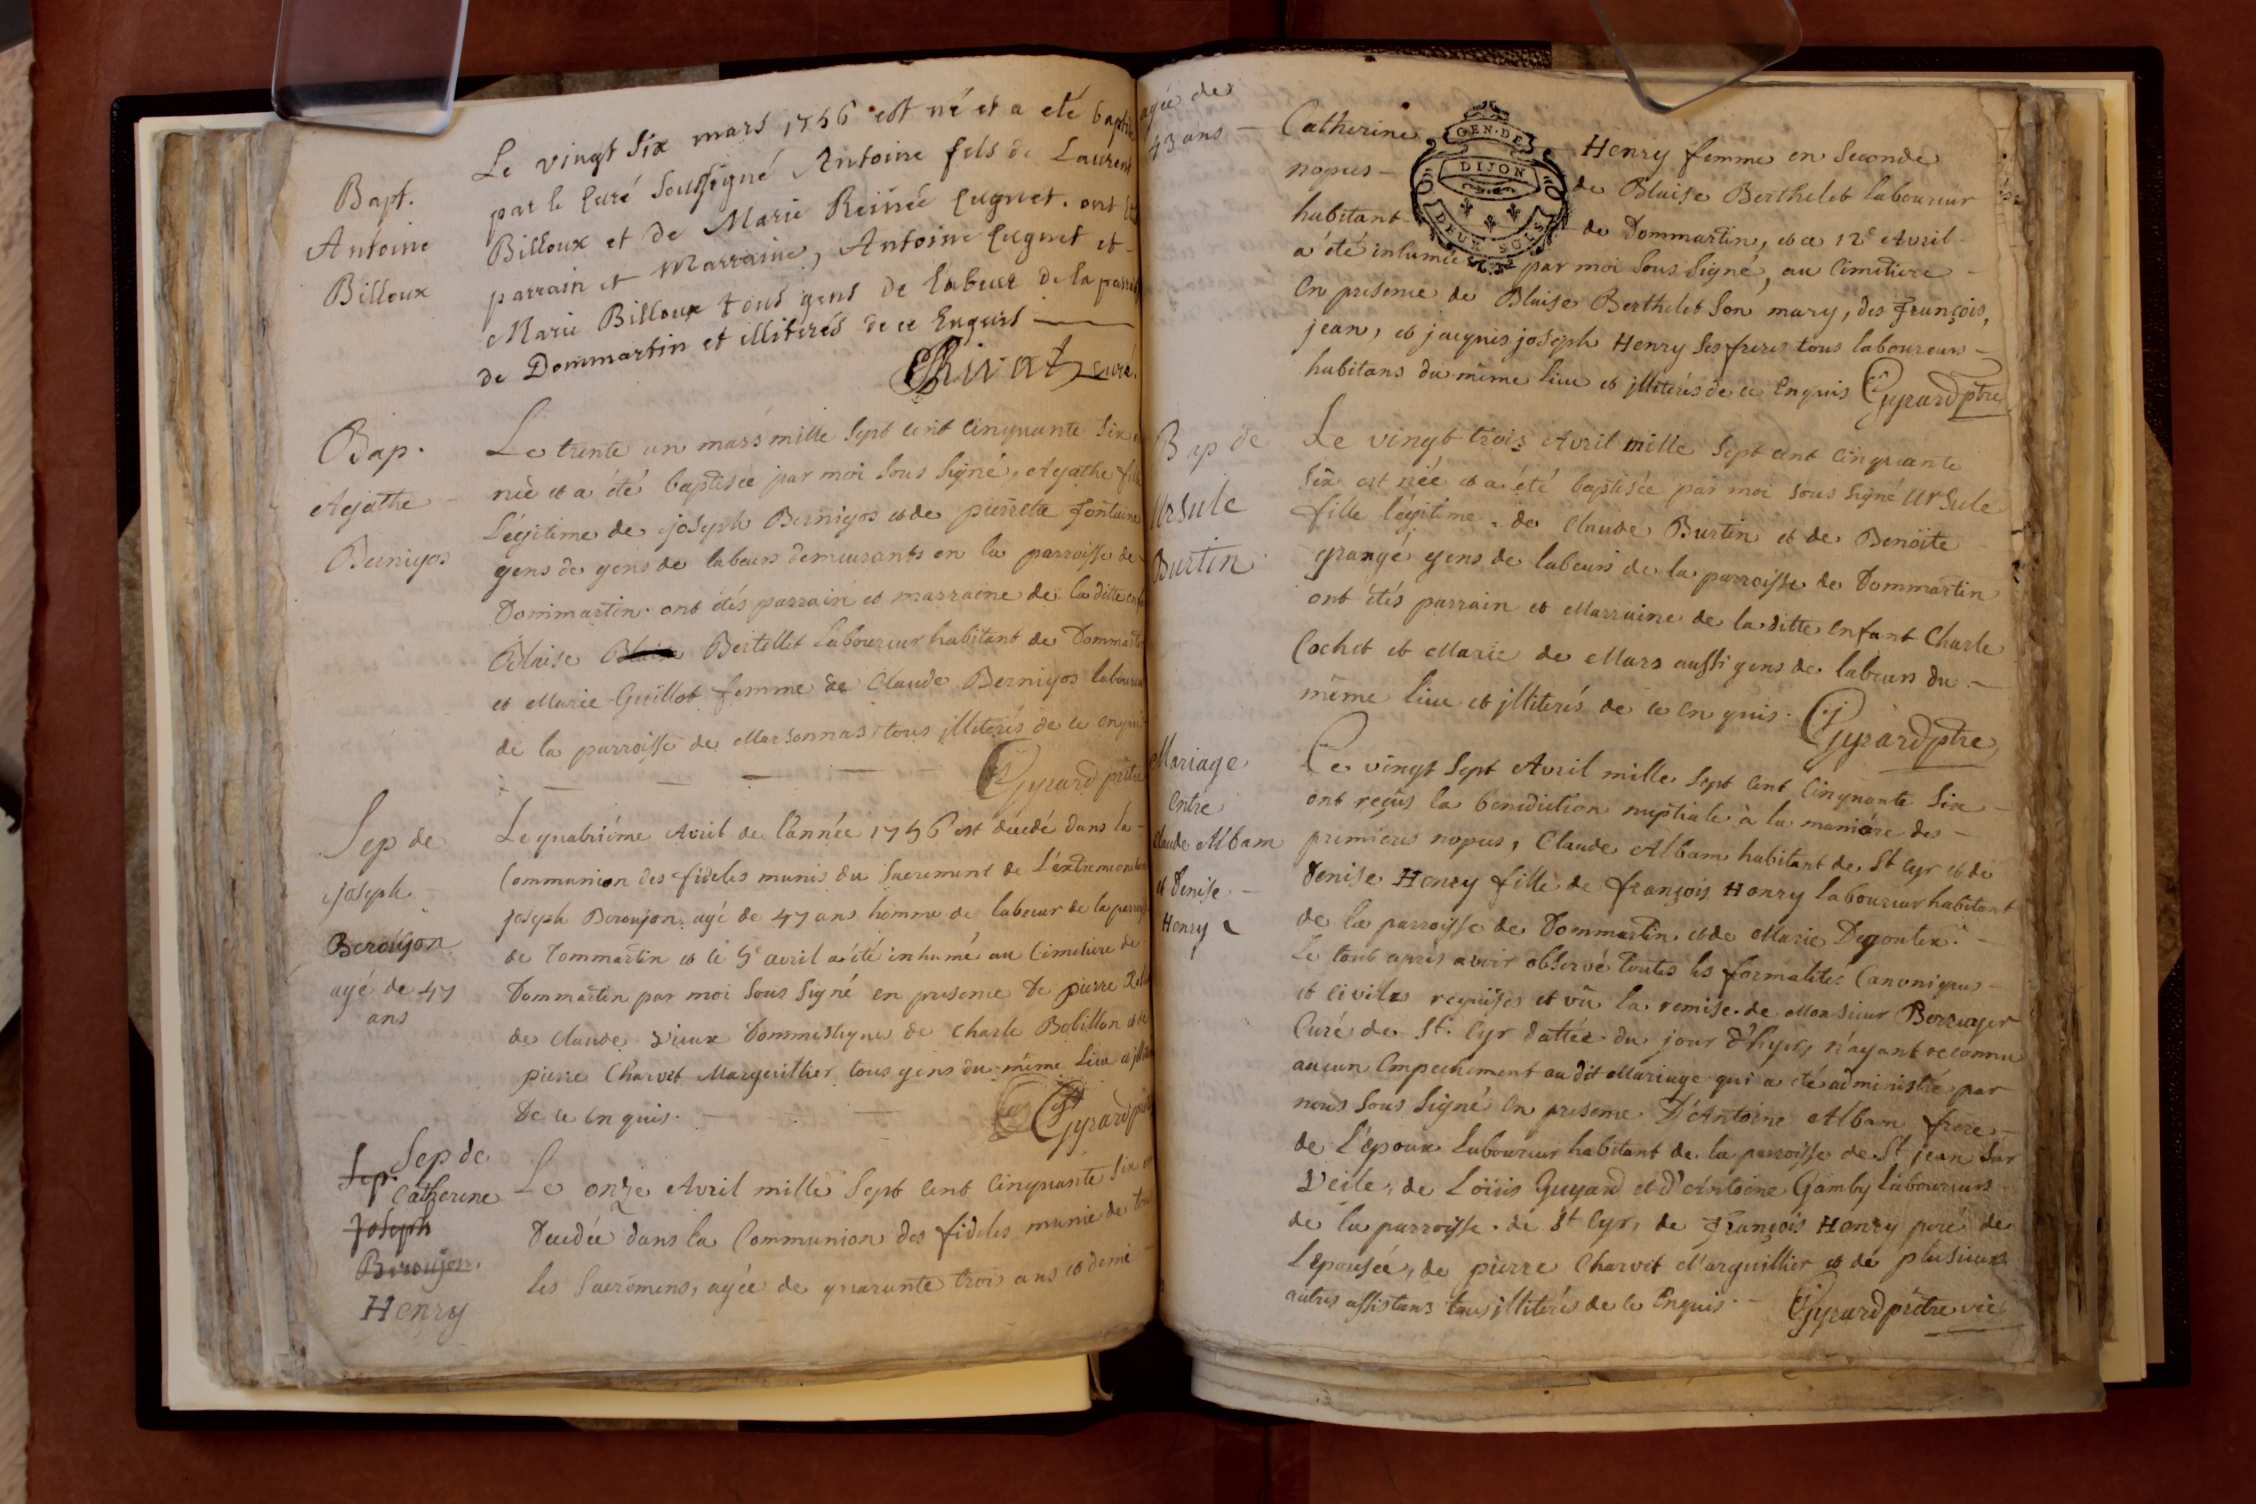 Bapt.
Antoine
Billoux
Le vingt Six mars 1756 est né et a eté baptisé
par le Curé Soussigné Antoine fils de Laurent
Billoux et de Marie Reinée Cugnet. ont
parrain et Marraine, Antoine Cugnet et
Marie Billoux tous gens de labeur de la
de Dommartin et illiterés de ce Enquis
curé.
Bap.
Agathe
Bernigos
Le trente un mars mille Sept cent cinquante Six
née et a été baptisée par moi Sous Signé, Agathe fille
Légitime de joseph Bernigos et de pierrette fontaine
gens de gens de labeurs demeurants en la parroisse de
Dommartin. ont étés parrain et marraine de la ditte
Blaise Blaise Bertellet laboureur habitant de
et Marie Guillot femme de Claude Bernigos laboureur
de la parroisse de Marsonnas tous illiterés de ce enquis
Gyrard prêtre
Sep de
joseph
Beroujon
agé de 47
ans
Le quatriéme Avril de l'année 1756 est décedé dans la
Communion des fideles munis du Sacrement de L'extremonction
joseph Beroujon agé de 47 ans homme de labeur de la
de Dommartin et le 5e avril a été inhumé au Cimetiere de
Dommartin par moi Sous Signé en presence De pierre
de Claude Vieux Dommestique de Charle Bobillon et de
pierre Charvet Marguillier tous gens du même Lieu et
De ce Enquis.
Gyrard
Sep. Sep de
Catherine
Joseph
Beroujon.
Henry
Le onze Avril mille Sept cent cinquante Six
Decedée dans la Communion des fideles munie de
les Sacremens, agée de quarante trois ans et demi
agée de
43 ans
Catherine Henry femme en Seconde
nopces de Blaise Berthelet laboureur
habitant de Dommartin, et a 12e Avril
a été inhumée par moi Sous Signé, au Cimetiere
GEN. DE
DIJON
DEUX SOLS
En presence de Blaise Berthelet Son mary, des françois,
jean, et jacques joseph Henry Ses freres tous laboureurs
habitans du même lieu et illiterés de ce Enquis Gyrard ptre
Bap de
Ursule
Burtin
Le vingt trois Avril mille Sept cent cinquante
Six est née et a été baptisée par moi Sous Signé Ursule
fille légitime de Claude Burtin et de Benoite
grangé gens de labeurs de la parroisse de Dommartin
ont étés parrain et Marraine de la ditte enfant Charle
Cochet et Marie de Mars aussi gens de labeurs du
même lieu et illiterés de ce enquis. Gyrard ptre
Mariage
Entre
Claude Albam
et Denise
Henry
Le vingt Sept Avril mille Sept Cent Cinquante Six
ont reçus la benediction nuptiale à la maniére des
premieres nopces, Claude Albam habitant de St Cyr et de
Denise Henry fille de françois Henry laboureur habitant
de la parroisse de Dommartin et de Marie
Le tout après avoir observé toutes les formalités Canoniques
et civiles requises et vû la remise de Monsieur
Curé de St. Cyr dattée du jour d'hyer, n'ayant reconnu
aucun Empechement au dit Mariage qui a été administré par
nous Sous Signé en presence D'Antoine Albam frere
de l'époux laboureur habitant de la parroisse de St jean Sur
Veile, de Loüis Guyard et d'Antoine Gamby laboureurs
de la parroisse de St Cyr, de François Henry peré de
l'Epousée, de pierre Charvet Marguillier et de plusieurs
autres assistans tous illiterés de ce Enquis. Gyrard prêtre vic